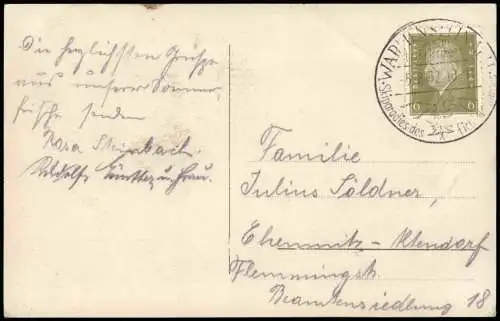 Die herzlichsten Grüße
aus unserer Sommer
frische senden
Rosa Steinbach.
u. Frau.
WARMENST
Skiparadies des
6 6
Familie
Julius Söldner,
Chemnitz-Altendorf
Flemmingstr.
Beamtensiedlung 18